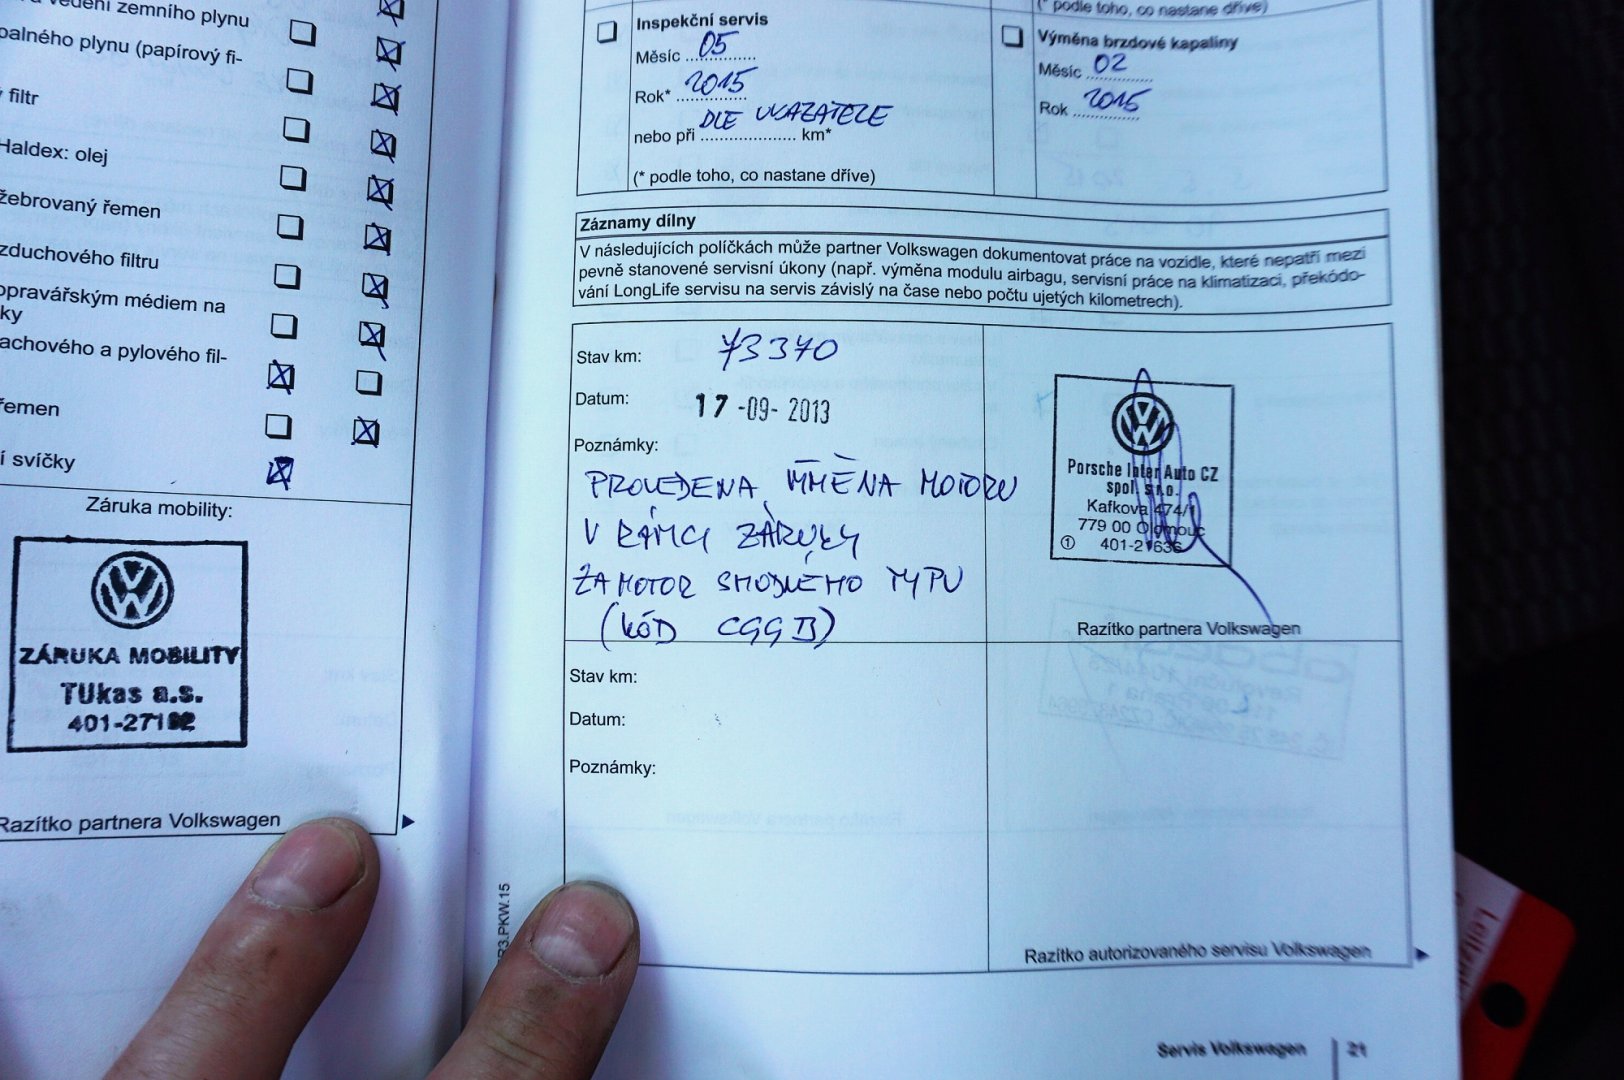 vedení zemního plynu
palného plynu (papírový fi-
filtr
Haldex: olej
žebrovaný řemen
zduchového filtru
opravářským médiem na
ky
achového a pylového fil-
řemen
í svíčky
Záruka mobility:
ZÁRUKA MOBILITY
TUkas a.s.
Razítko partnera Volkswagen
R3.PKW.15
(* podle toho, co nastane dříve)
Inspekční servis
Měsíc 05
Rok* 2015
nebo při DLE UKAZATELE km*
(* podle toho, co nastane dříve)
Výměna brzdové kapaliny
Měsíc 02
Rok 2015
Záznamy dílny
V následujících políčkách může partner Volkswagen dokumentovat práce na vozidle, které nepatří mezi
pevně stanovené servisní úkony (např. výměna modulu airbagu, servisní práce na klimatizaci, překódo-
vání LongLife servisu na servis závislý na čase nebo počtu ujetých kilometrech).
Stav km: 73370
Datum: 17-09-2013
Poznámky:
PROVEDENA VÝMĚNA MOTORU
V RÁMCI ZÁRUKY
ZA MOTOR SHODNÉHO TYPU
(KÓD CGGB)
Porsche Inter Auto CZ
spol. s r.o.
Kafkova 474/1
779 00 Olomouc
① 401-21636
Razítko partnera Volkswagen
Stav km:
Datum:
Poznámky:
Razítko autorizovaného servisu Volkswagen
Servis Volkswagen 21